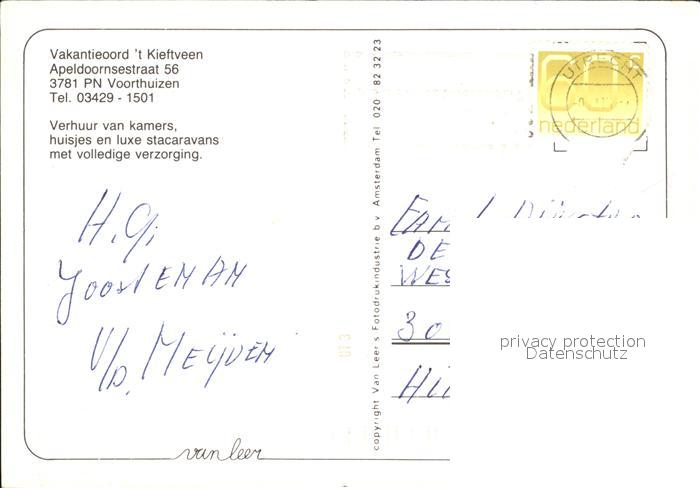 Vakantieoord 't Kieftveen
Apeldoornsestraat 56
3781 PN Voorthuizen
Tel. 03429 - 1501
Verhuur van kamers,
huisjes en luxe stacaravans
met volledige verzorging.
H.G.
Joost EN AM
V/D. MEIJDEN
van leer
copyright Van Leer's Fotodrukindustrie b.v. Amsterdam Tel. 020 - 82 32 23
UTRECHT
60c
nederland
FAM
DE
WES
30
privacy protection
Datenschutz